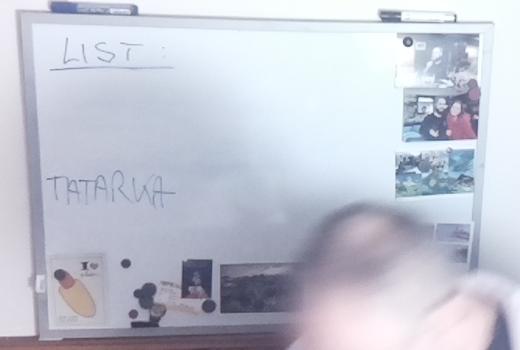 LIST:
TATARKA
I